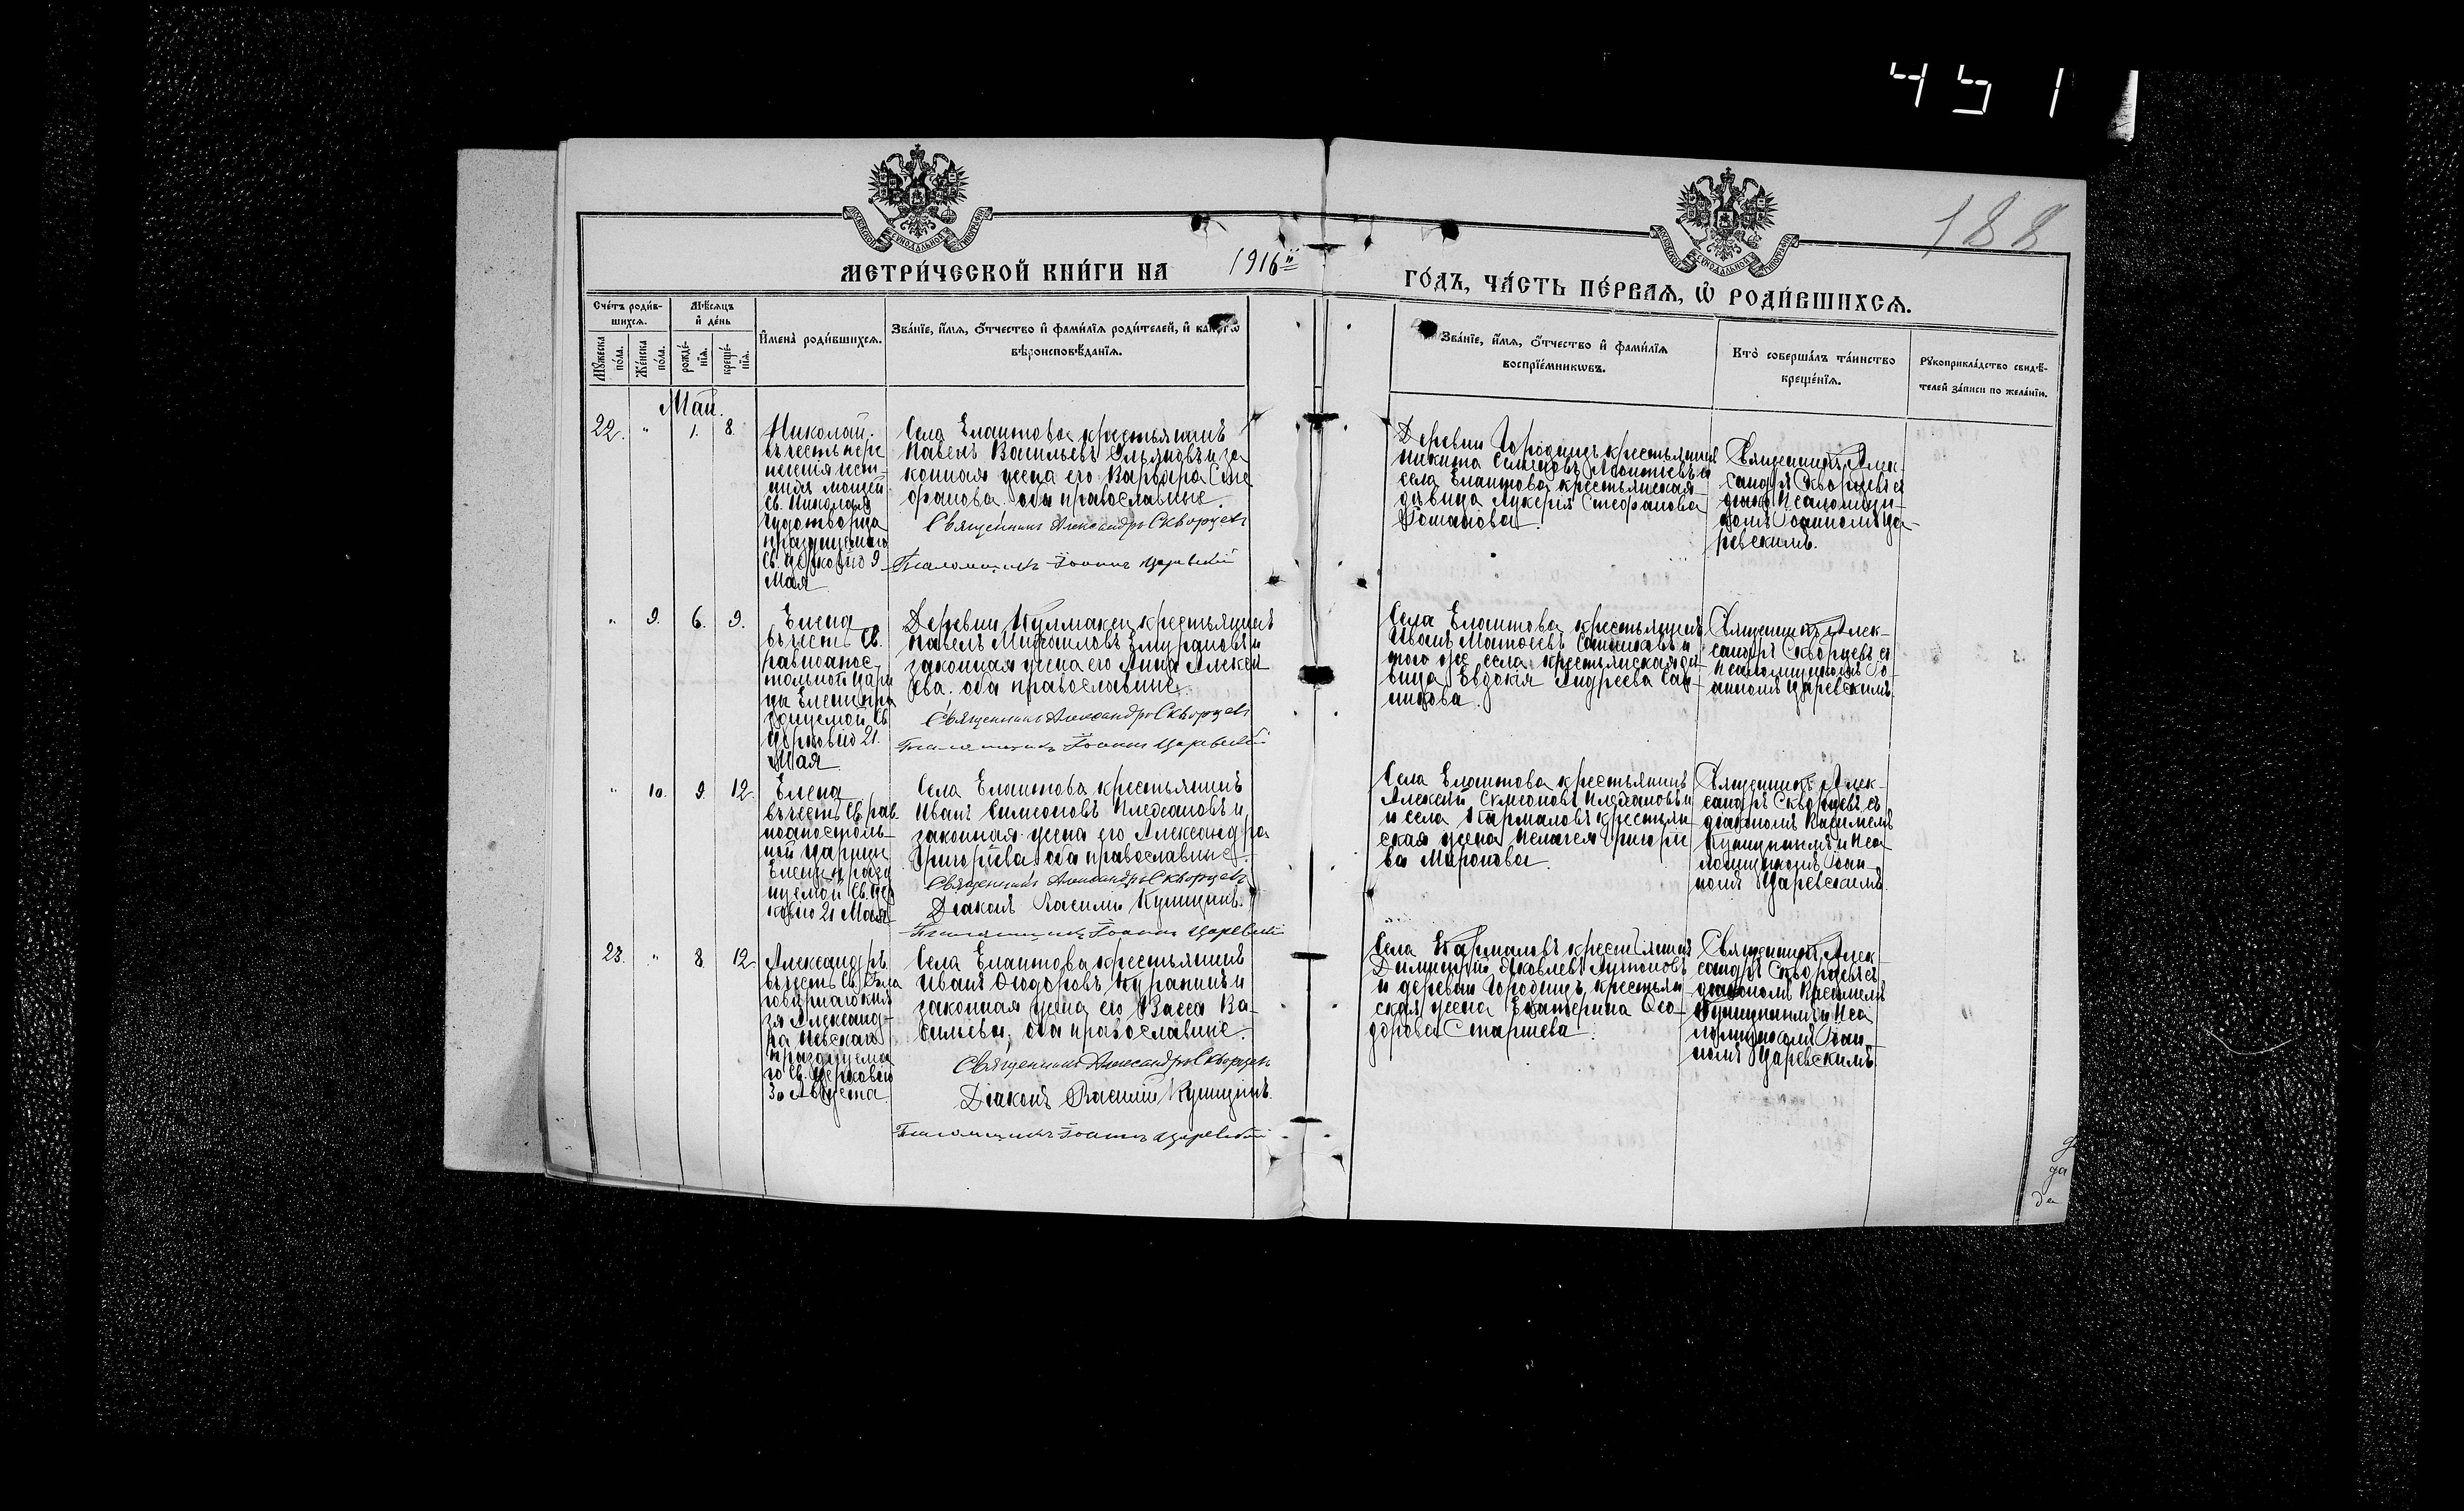 451
188
МЕТРИ́ЧЕСКОЙ КНИ́ГИ НА 1916 ГО́ДЪ, ЧА́СТЬ ПЕ́РВАѦ, Ѡ РОДИ́ВШИХСѦ.
Сче́тъ роди́в-
шихсѧ.
Мꙋжеска по́ла.
Же́нска по́ла.
Мѣ́сѧцъ
и҆ де́нь
рожде́-
нїѧ.
креще́-
нїѧ.
И҆мена̀ роди́вшихсѧ.
Зва́нїе, и҆́мѧ, ѻ҆́тчество и҆ фами́лїѧ роди́телей, и҆ како́гѡ
вѣроисповѣ́данїѧ.
Зва́нїе, и҆́мѧ, ѻ҆́тчество и҆ фами́лїѧ
воспрїе́мникѡвъ.
Кто̀ соверша́лъ та́инство
креще́нїѧ.
Рꙋкоприкла́дство свидѣ́-
телей за́писи по жела́нїю.
Май.
22. " 1. 8.
Николай
въ честь пере
несенія
мощей
Св. Николая
Чудотворца
Св. Церковію 9
Мая
Села Елаитова крестьянинъ
Павелъ Васильевъ Ульяновъ и за
конная жена его Варвара Сте
фанова. оба православные.
Священникъ Александръ Скворцевъ
Псаломщикъ Іоаннъ Царевскій
Деревни Городищъ крестьянинъ
Никита
села Елаитова крестьянская
дѣвица Лукерія Стефанова
Романова.
Священникъ Алек-
сандръ Скворцевъ съ
псаломщи-
комъ Іоанномъ Ца-
ревскимъ.
" 9. 6. 9.
Елена
въ честь Св.
равноапос-
тольной цари
цы Елены пра
зднуемой Св.
Церковію 21.
Мая
Деревни Кулмакси крестьянинъ
Павелъ Михаиловъ и
законная жена его Анна Алексѣ
ева. оба православные.
Священникъ Александръ Скворцевъ
Псаломщикъ Іоаннъ Царевскій
Села Елаитова крестьянинъ
Иванъ Матѳеевъ Санниковъ и
того же села крестьянская дѣ-
вица Евдокія Андреева Сан-
никова.
Священникъ Алек-
сандръ Скворцевъ съ
псаломщикомъ Іо-
анномъ Царевскимъ.
" 10. 9. 12.
Елена
въ честь Св. рав-
ноапостоль-
ной царицы
Елены празд
нуемой Св. Цер
ковію 21 Мая
Села Елаитова крестьянинъ
Иванъ Симеоновъ Плехановъ и
законная жена его Александра
Григорьева оба православные.
Священникъ Александръ Скворцевъ
Діаконъ Василій Купицынъ.
Псаломщикъ Іоаннъ Царевскій
Села Елаитова крестьянинъ
Алексѣй Симеоновъ Плехановъ и
и села Кармаловъ крестьян
ская жена Пелагея Григорье
ва Миронова.
Священникъ Алек-
сандръ Скворцевъ съ
діакономъ Василіемъ
Купицынымъ и пса-
ломщикомъ Іоан-
номъ Царевскимъ.
23. " 8. 12.
Александръ
въ честь Св. бла
говѣрнаго кня
зя Александ-
ра Невскаго
празднуема
го Св. Церковію
30 Августа
Села Елаитова крестьянинъ
Иванъ Ѳеодоровъ Куранинъ и
законная жена его Васса Ва-
сильева, оба православные.
Священникъ Александръ Скворцевъ
Діаконъ Василій Купицынъ.
Псаломщикъ Іоаннъ Царевскій
Села Кармаловъ крестьянинъ
Димитрій Яковлевъ Антоновъ
и деревни Городищъ крестьян
ская жена Екатерина Ѳео-
дорова Старшева.
Священникъ Алек-
сандръ Скворцевъ съ
діакономъ Василіемъ
Купицынымъ и пса
ломщикомъ Іоан-
номъ Царевскимъ.